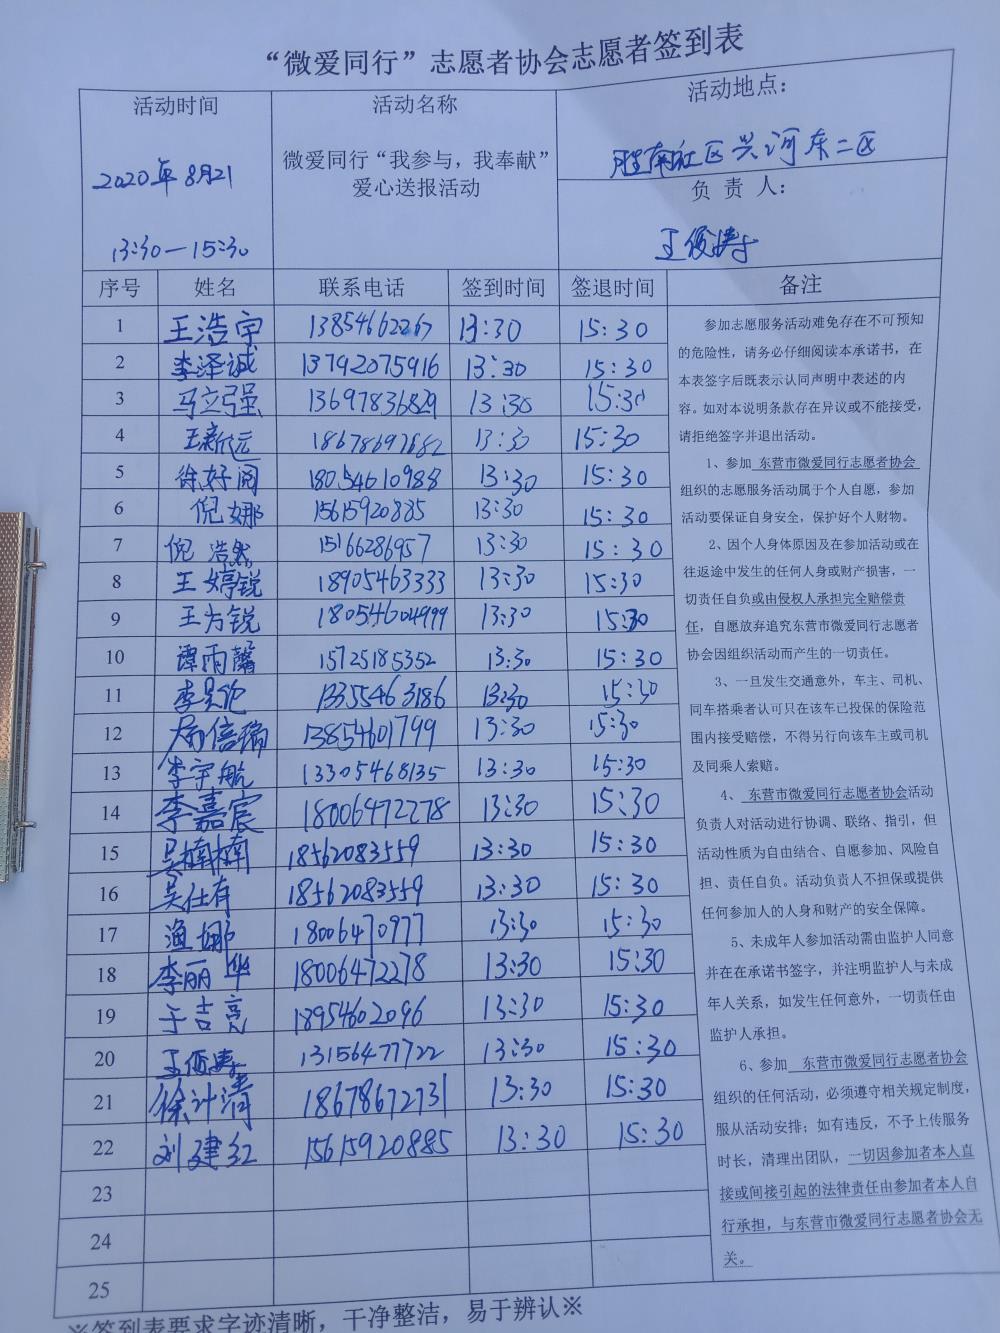 “微爱同行”志愿者协会志愿者签到表
活动时间 活动名称 活动地点：
2020年8月21 微爱同行“我参与，我奉献” 胜南社区兴河东二区
爱心送报活动 负责人：
13:30—15:30 王俊涛
序号 姓名 联系电话 签到时间 签退时间 备注
1 王浩宇 13854662267 13:30 15:30
2 李泽诚 13792075916 13:30 15:30
3 马立强 13697836829 13:30 15:30
4 王新远 18678697682 13:30 15:30
5 徐好阅 18054610988 13:30 15:30
6 倪娜 15615920885 13:30 15:30
7 倪浩然 15166286957 13:30 15:30
8 王婷锐 18905463333 13:30 15:30
9 王方锐 18054604999 13:30 15:30
10 谭雨馨 15725185352 13:30 15:30
11 李昊伦 13355463186 13:30 15:30
12 周信瑞 13854601799 13:30 15:30
13 李宇航 13305468135 13:30 15:30
14 李嘉宸 18006472278 13:30 15:30
15 吴楠楠 18562083559 13:30 15:30
16 吴仕有 18562083559 13:30 15:30
17 渔娜 18006470977 13:30 15:30
18 李丽华 18006472278 13:30 15:30
19 于吉亮 18954602096 13:30 15:30
20 王俊涛 13156477722 13:30 15:30
21 徐计清 18678672731 13:30 15:30
22 刘建红 15615920885 13:30 15:30
23
24
25
参加志愿服务活动难免存在不可预知
的危险性，请务必仔细阅读本承诺书，在
本表签字后既表示认同声明中表述的内
容。如对本说明条款存在异议或不能接受，
请拒绝签字并退出活动。
1、参加 东营市微爱同行志愿者协会
组织的志愿服务活动属于个人自愿，参加
活动要保证自身安全，保护好个人财物。
2、因个人身体原因及在参加活动或在
往返途中发生的任何人身或财产损害，一
切责任自负或由侵权人承担完全赔偿责
任，自愿放弃追究东营市微爱同行志愿者
协会因组织活动而产生的一切责任。
3、一旦发生交通意外，车主、司机、
同车搭乘者认可只在该车已投保的保险范
围内接受赔偿，不得另行向该车主或司机
及同乘人索赔。
4、 东营市微爱同行志愿者协会活动
负责人对活动进行协调、联络、指引，但
活动性质为自由结合、自愿参加、风险自
担、责任自负。活动负责人不担保或提供
任何参加人的人身和财产的安全保障。
5、未成年人参加活动需由监护人同意
并在在承诺书签字，并注明监护人与未成
年人关系，如发生任何意外，一切责任由
监护人承担。
6、参加 东营市微爱同行志愿者协会
组织的任何活动，必须遵守相关规定制度，
服从活动安排；如有违反，不予上传服务
时长，清理出团队，一切因参加者本人直
接或间接引起的法律责任由参加者本人自
行承担，与东营市微爱同行志愿者协会无
关。
※签到表要求字迹清晰，干净整洁，易于辨认※